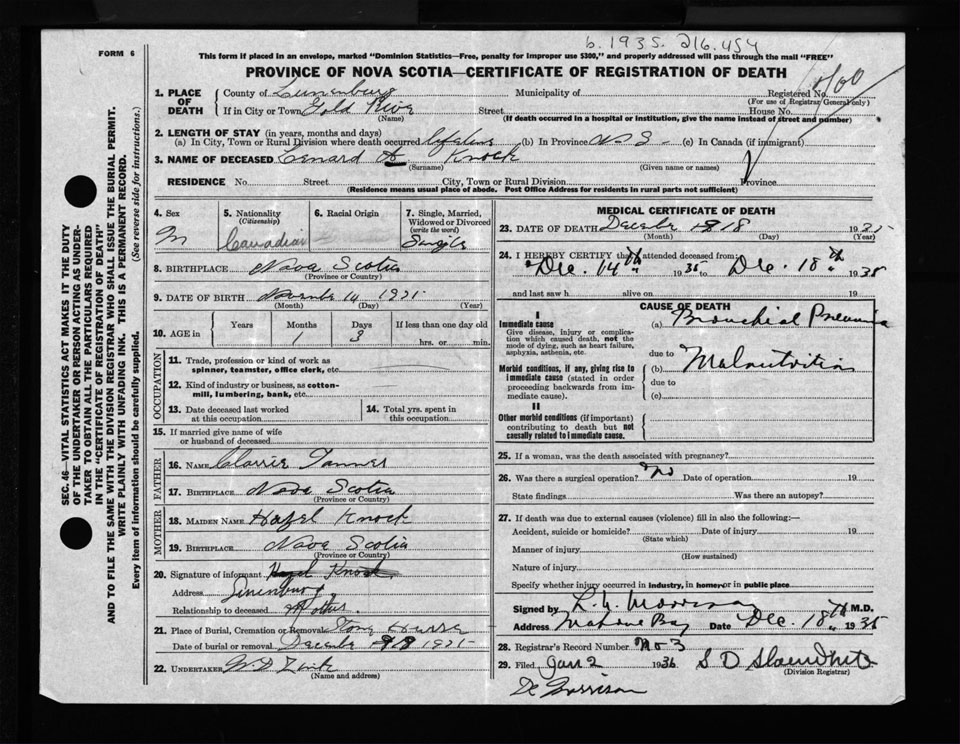 b. 1935. 216.454
FORM 6
This form if placed in an envelope, marked "Dominion Statistics—Free, penalty for improper use $300," and properly addressed will pass through the mail "FREE"
PROVINCE OF NOVA SCOTIA—CERTIFICATE OF REGISTRATION OF DEATH
SEC. 46—VITAL STATISTICS ACT MAKES IT THE DUTY
OF THE UNDERTAKER OR PERSON ACTING AS UNDER-
TAKER TO OBTAIN ALL THE PARTICULARS REQUIRED
IN THE "CERTIFICATE OF REGISTRATION OF DEATH"
AND TO FILE THE SAME WITH THE DIVISION REGISTRAR WHO SHALL ISSUE THE BURIAL PERMIT.
WRITE PLAINLY WITH UNFADING INK. THIS IS A PERMANENT RECORD.
Every item of information should be carefully supplied. (See reverse side for instructions.)
1. PLACE OF DEATH County of Lunenburg Municipality of Registered No.
(For use of Registrar General only)
If in City or Town Gold River Street House No.
(Name) (If death occurred in a hospital or institution, give the name instead of street and number)
2. LENGTH OF STAY (in years, months and days)
(a) In City, Town or Rural Division where death occurred lifetime (b) In Province N S (c) In Canada (if immigrant)
3. NAME OF DECEASED Lenard A Knock
(Surname) (Given name or names)
RESIDENCE No. Street City, Town or Rural Division Province
(Residence means usual place of abode. Post Office Address for residents in rural parts not sufficient)
4. Sex 5. Nationality (Citizenship) 6. Racial Origin 7. Single, Married, Widowed or Divorced (write the word)
M Canadian Single
8. BIRTHPLACE Nova Scotia
(Province or Country)
9. DATE OF BIRTH November 14 1935
(Month) (Day) (Year)
10. AGE in Years Months Days If less than one day old
1 3 hrs. or min.
OCCUPATION
11. Trade, profession or kind of work as spinner, teamster, office clerk, etc.
12. Kind of industry or business, as cotton-mill, lumbering, bank, etc.
13. Date deceased last worked at this occupation
14. Total yrs. spent in this occupation
15. If married give name of wife or husband of deceased
FATHER
16. NAME Clarrie Tanner
17. BIRTHPLACE Nova Scotia
(Province or Country)
MOTHER
18. MAIDEN NAME Hazel Knock
19. BIRTHPLACE Nova Scotia
(Province or Country)
20. Signature of informant Hazel Knock
Address Lunenburg.
Relationship to deceased Mother.
21. Place of Burial, Cremation or Removal
Date of burial or removal December 1935
22. UNDERTAKER
(Name and address)
MEDICAL CERTIFICATE OF DEATH
23. DATE OF DEATH December 18 1935
(Month) (Day) (Year)
24. I HEREBY CERTIFY that I attended deceased from:
Dec. 14th 1935 to Dec. 18th 1935
and last saw h alive on 19
CAUSE OF DEATH
I
Immediate cause
Give disease, injury or complication which caused death, not the mode of dying, such as heart failure, asphyxia, asthenia, etc.
(a) Bronchial Pneumonia
due to
Morbid conditions, if any, giving rise to immediate cause (stated in order proceeding backwards from immediate cause).
(b) Malnutrition
due to
(c)
II
Other morbid conditions (if important) contributing to death but not causally related to immediate cause.
25. If a woman, was the death associated with pregnancy?
26. Was there a surgical operation? No Date of operation 19
State findings Was there an autopsy?
27. If death was due to external causes (violence) fill in also the following:—
Accident, suicide or homicide? Date of injury 19
(State which)
Manner of injury
(How sustained)
Nature of injury
Specify whether injury occurred in industry, in home, or in public place
Signed by Morrison M.D.
Address Mahone Bay Date Dec. 18th 1935
28. Registrar's Record Number No 3
29. Filed Jan 2 1936 S D Slaunwhite
(Division Registrar)
Dr Morrison